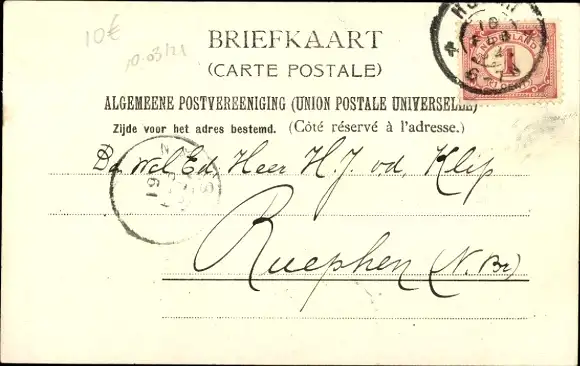 10€
10-03/21
BRIEFKAART
(CARTE POSTALE)
ALGEMEENE POSTVEREENIGING (UNION POSTALE UNIVERSELLE)
Zijde voor het adres bestemd. (Côté réservé à l'adresse.)
De Wel Ed. Heer H. J. v. d. Klip
(N. Br)
NEDERLAND
1